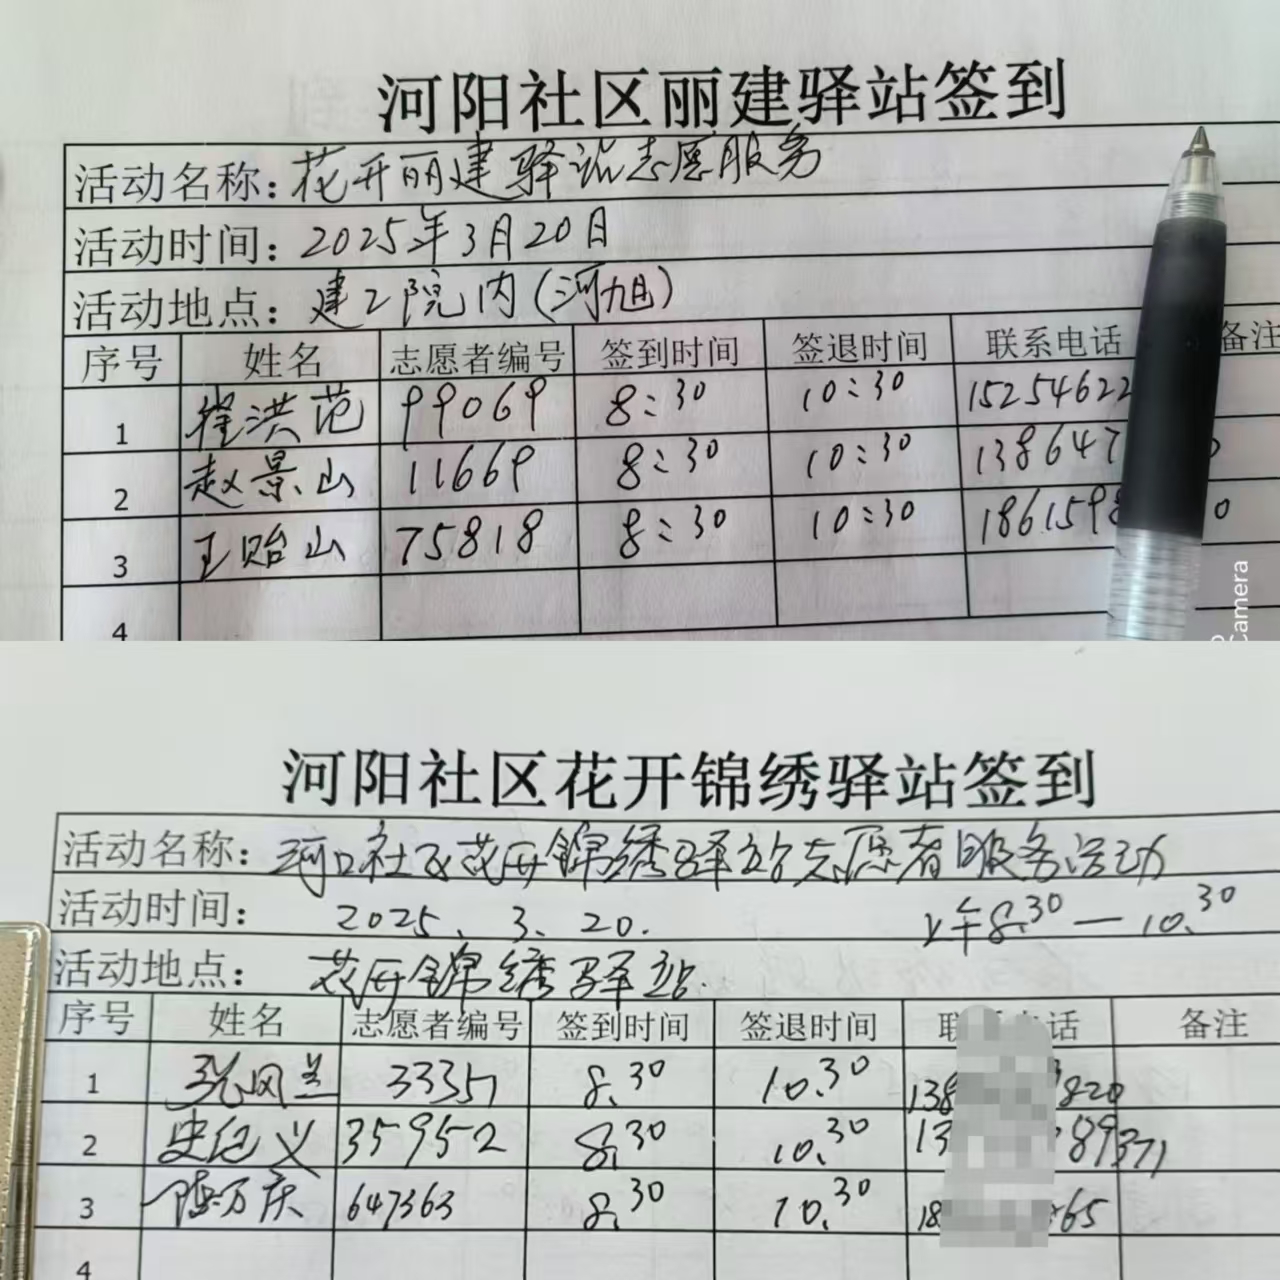 河阳社区丽建驿站签到
活动名称:花开丽建驿站志愿服务
活动时间:2025年3月20日
活动地点:建工院内(河旭)
序号 姓名 志愿者编号 签到时间 签退时间 联系电话 备注
1 崔洪范 99069 8:30 10:30 15254622
2 赵景山 11669 8:30 10:30 138647
3 王贻山 75818 8:30 10:30 186159 0
4
Camera
河阳社区花开锦绣驿站签到
活动名称:河口社区花开锦绣驿站志愿者服务活动
活动时间: 2025、3、20. 上午8.30—10.30
活动地点: 花开锦绣驿站.
序号 姓名 志愿者编号 签到时间 签退时间 电话 备注
1 张风兰 8.30 10.30 138 820
2 史纪义 35952 8.30 10.30 13 89371
3 陈万庆 647363 8.30 10.30 18 65
4